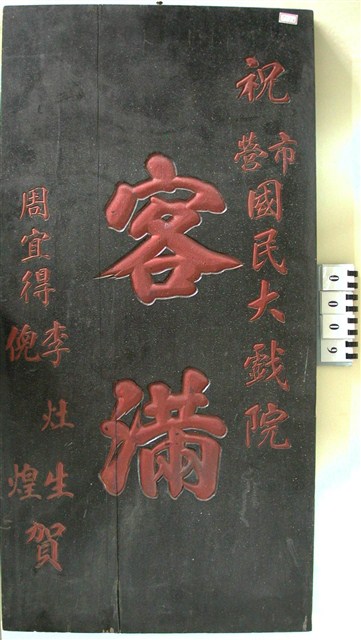 祝
市營
國民大戲院
客滿
周宜得
李灶生
倪煌
賀
0009